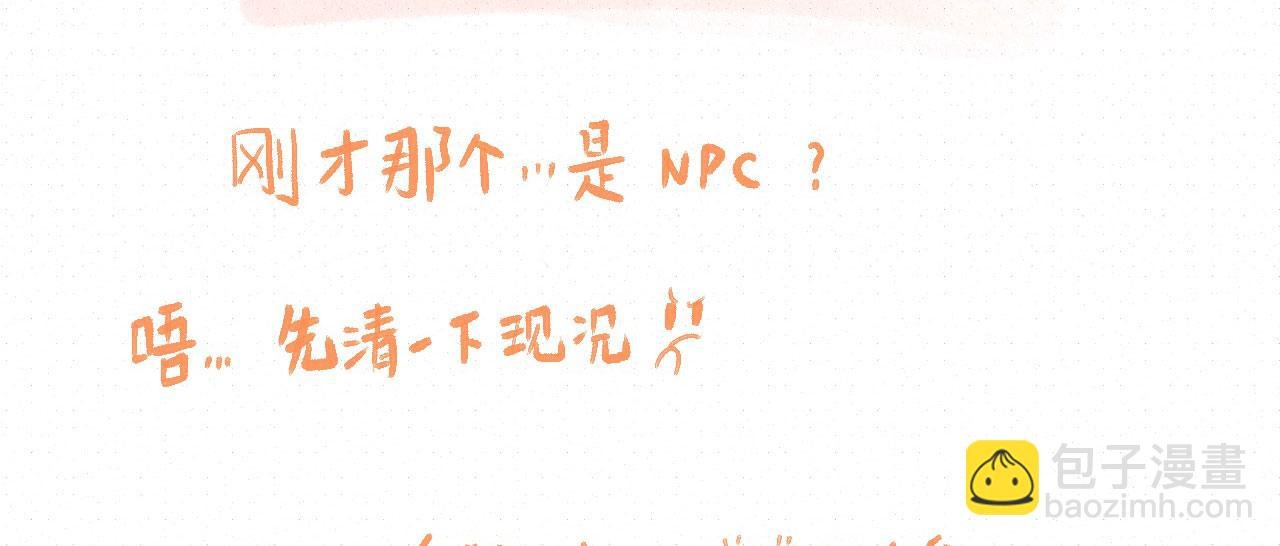 刚才那个...是 NPC ?
唔... 先清一下现况
包子漫畫
baozimh.com